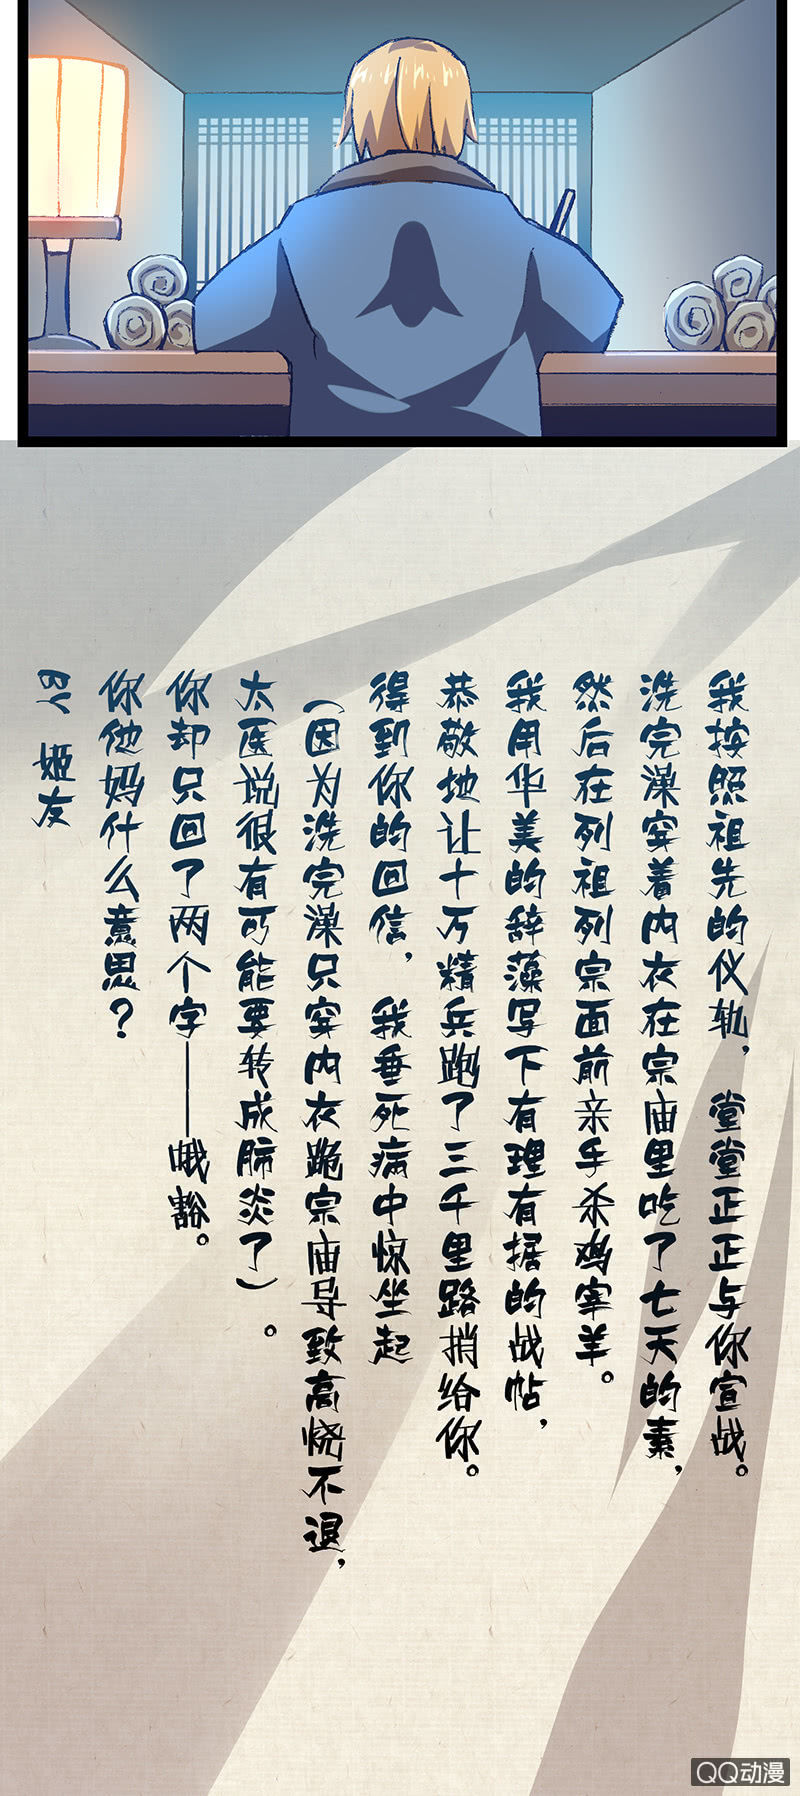 我按照祖先的仪轨，堂堂正正与你宣战。
洗完澡穿着内衣在宗庙里吃了七天的素，
然后在列祖列宗面前亲手杀鸡宰羊。
我用华美的辞藻写下有理有据的战帖，
恭敬地让十万精兵跑了三千里路捎给你。
得到你的回信，我垂死病中惊坐起
（因为洗完澡只穿内衣跪宗庙导致高烧不退，
太医说很有可能要转成肺炎了）。
你却只回了两个字——哦豁。
你他妈什么意思？
BY 姬友
QQ动漫